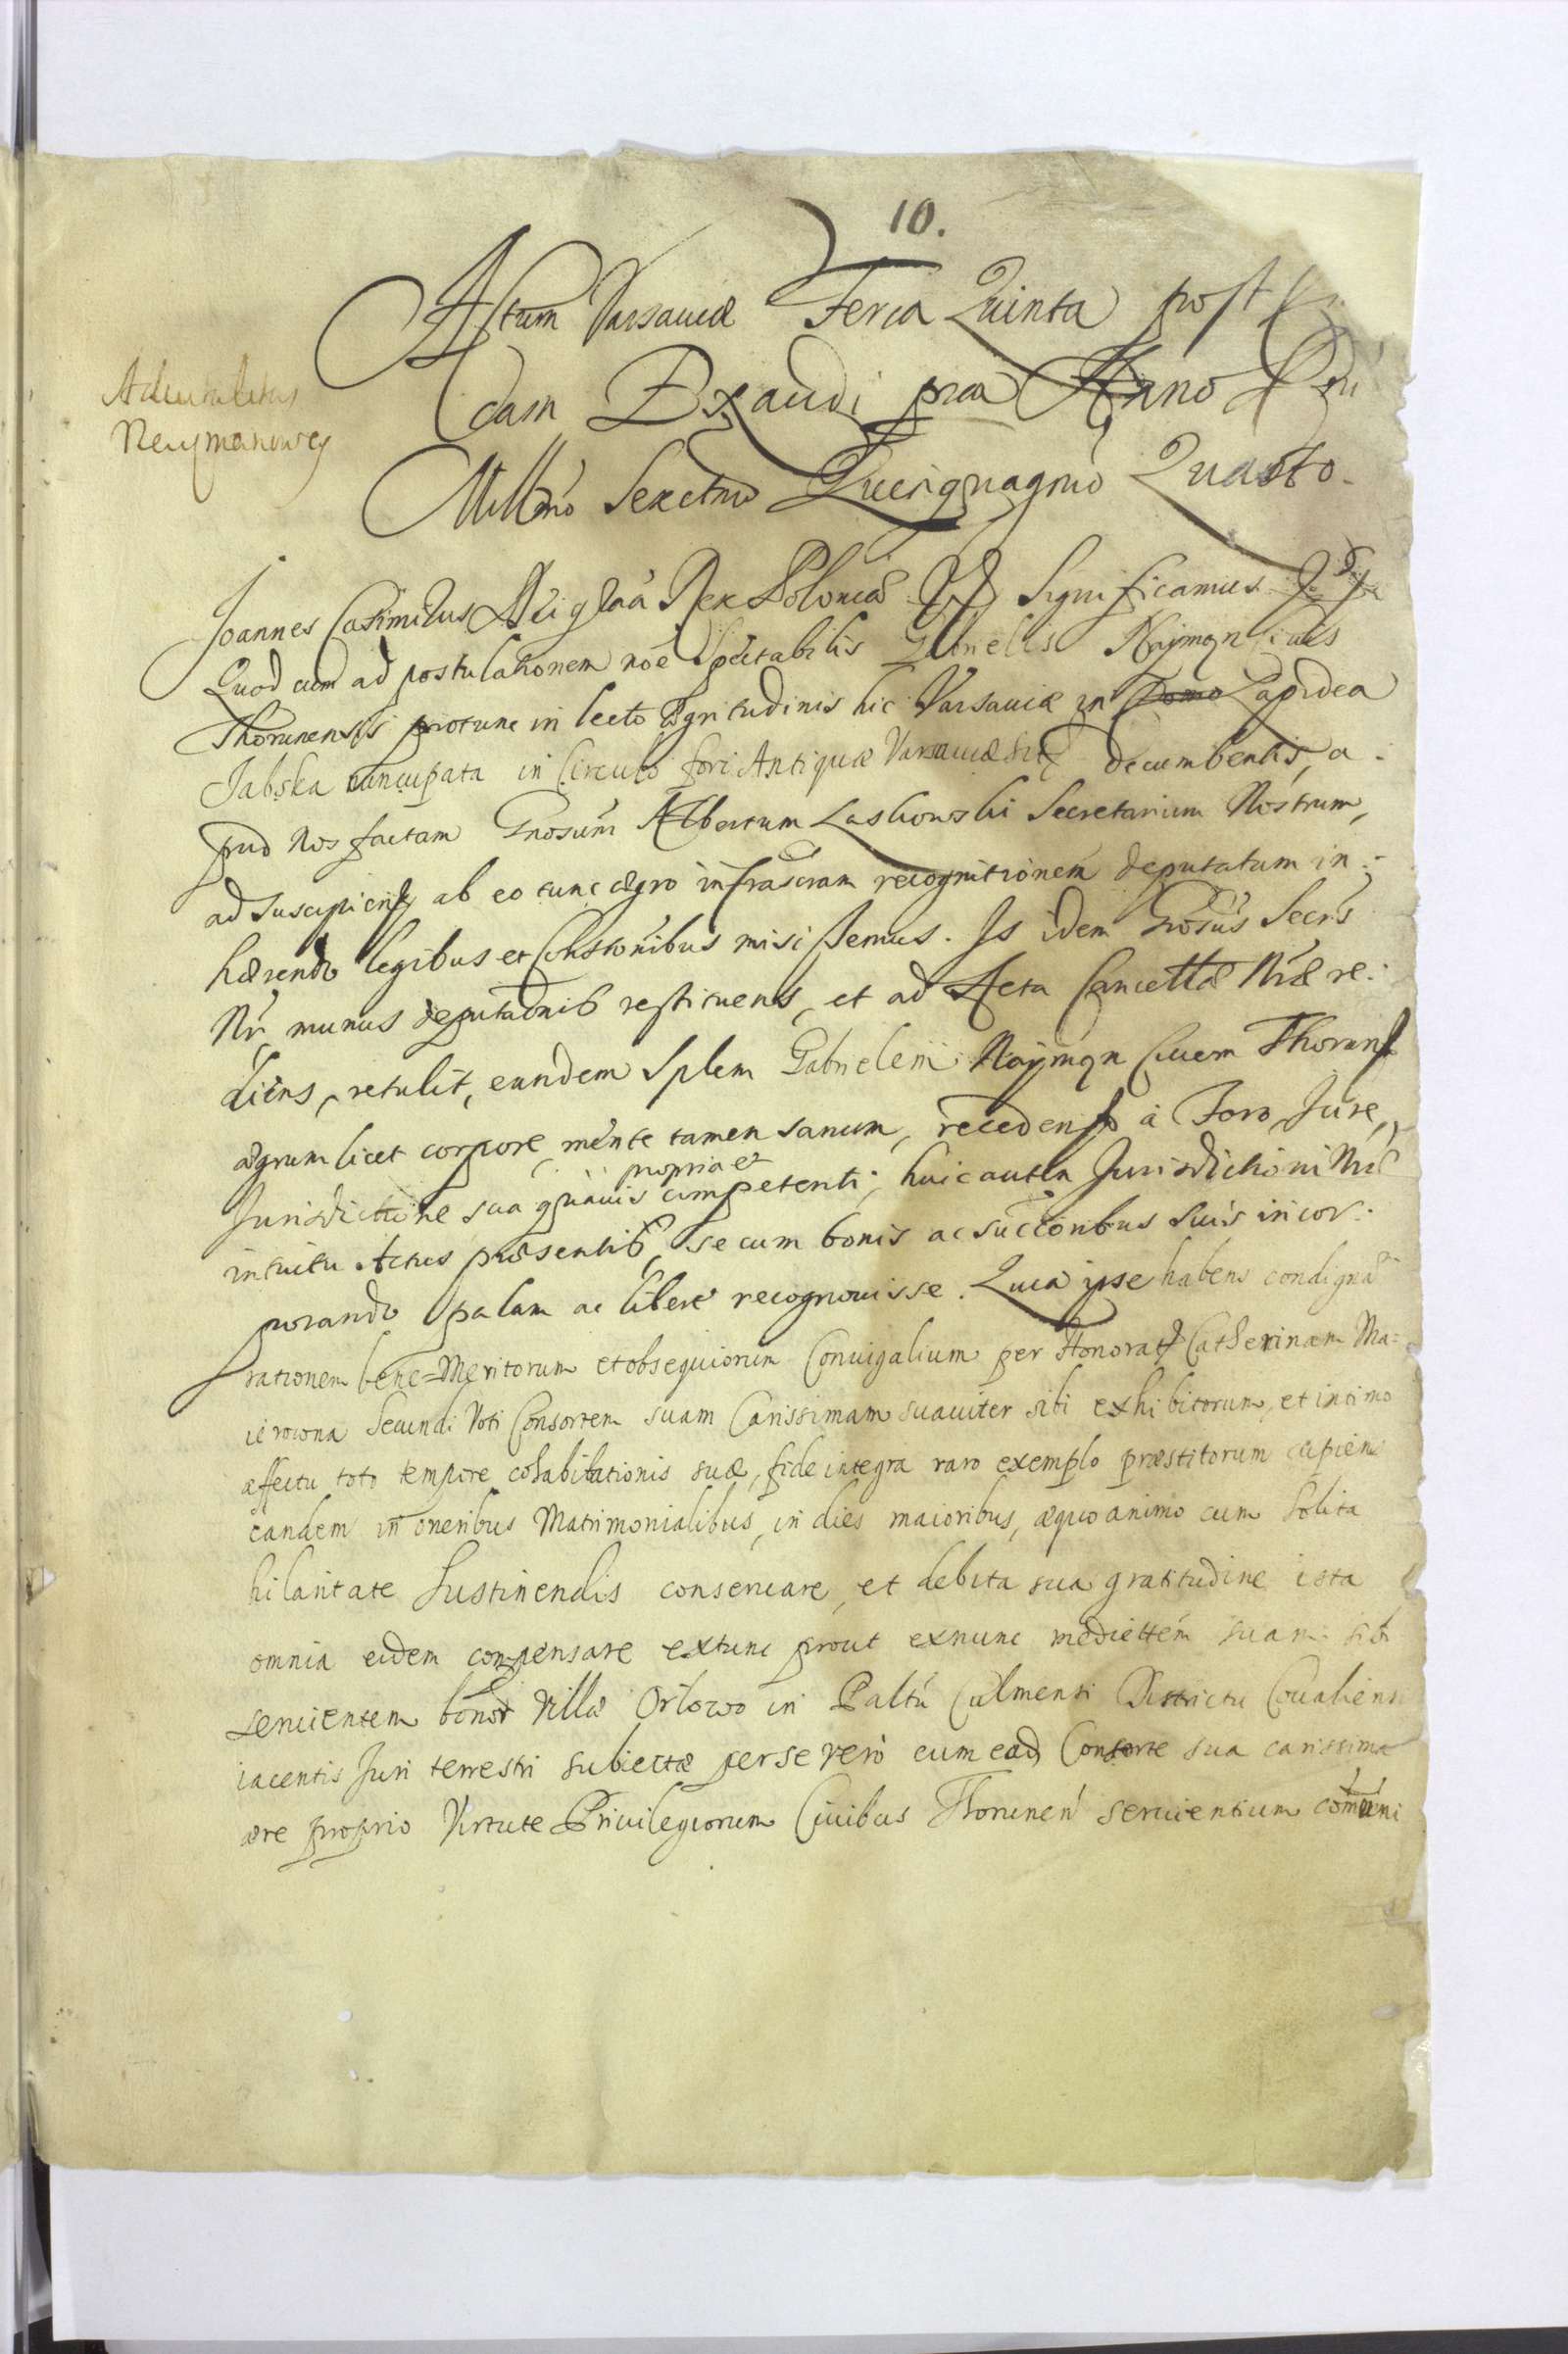 10.
Actum Varsauiæ Feria Quinta post
cam Exaudi pxa Anno Dni
Millmo Sexctmo Quinquagmo Quarto.
Aduitalitas
Neymanowey
Joannes Casimirus Dei graa Rex Poloniæ Significamus
Quod cum ad postulationem noe Spectabilis Gabrielis Naÿman ciuis
Thorunensis protunc in lecto ægritudinis hic Varsauiæ in Domo Lapidea
Jabska nuncupata in Circulo fori Antiquæ Varsauiæ decumbentis, a.
pud Nos factam Gnosum Albertum Laskowski Secretarium Nostrum,
ad suscipiend ab eo tunc ægro infrascram recognitionem deputatum in:
hærendo legibus et Constonibus misissemus. Is idem Gnosus Secrs
Nr munus deputaonis restituens, et ad Acta Cancellæ Nræ re:
diens, retulit, eundem Splem Gabrielem Naÿman Ciuem Thorunen
ægrum licet corpore, mente tamen sanum, recedendo à Foro, Jure,
propria et
Jurisdictione sua quauis competenti; huic autem Jurisdictioni Nræ
intuitu Actus præsentis, se cum bonis ac succonibus suis incor:
porando palam ac libere recognouisse. Quia ipse habens condignã
rationem bene=Meritorum et obsequiorum Conuigalium per Honorat Catherinam Ma=
ierowna Secundi Voti Consortem suam Carissimam suauiter sibi exhibitorum, et intimo
affectu toto tempore cohabitationis suæ, fide integra raro exemplo præstitorum cupiens
eandem in oneribus Matrimonialibus, in dies maioribus, æquo animo cum solita
hilaritate Sustinendis conseruare, et debita sua gratitudine ista
omnia eidem compensare extunc prout exnunc mediettem suam sibi
seruientem bonor Villæ Orlowo in Paltu Culmensi Districtu Coualiensi
iacentis Juri terrestri subiectæ per se vero cum ead Consorte sua carissima
ære proprio Virtute Priuilegiorum Ciuibus Thorunen seruientium comuni